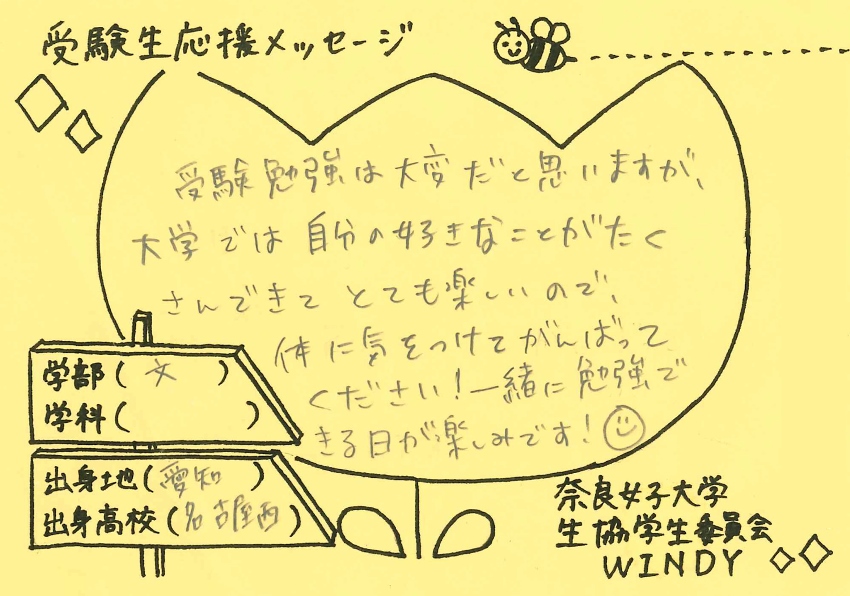 受験生応援メッセージ
受験勉強は大変だと思いますが、
大学では自分の好きなことがたく
さんできてとても楽しいので、
体に気をつけてがんばって
ください！一緒に勉強で
きる日が楽しみです！
学部（ 文 ）
学科（ ）
出身地（愛知）
出身高校（名古屋西）
奈良女子大学
生協学生委員会
WINDY